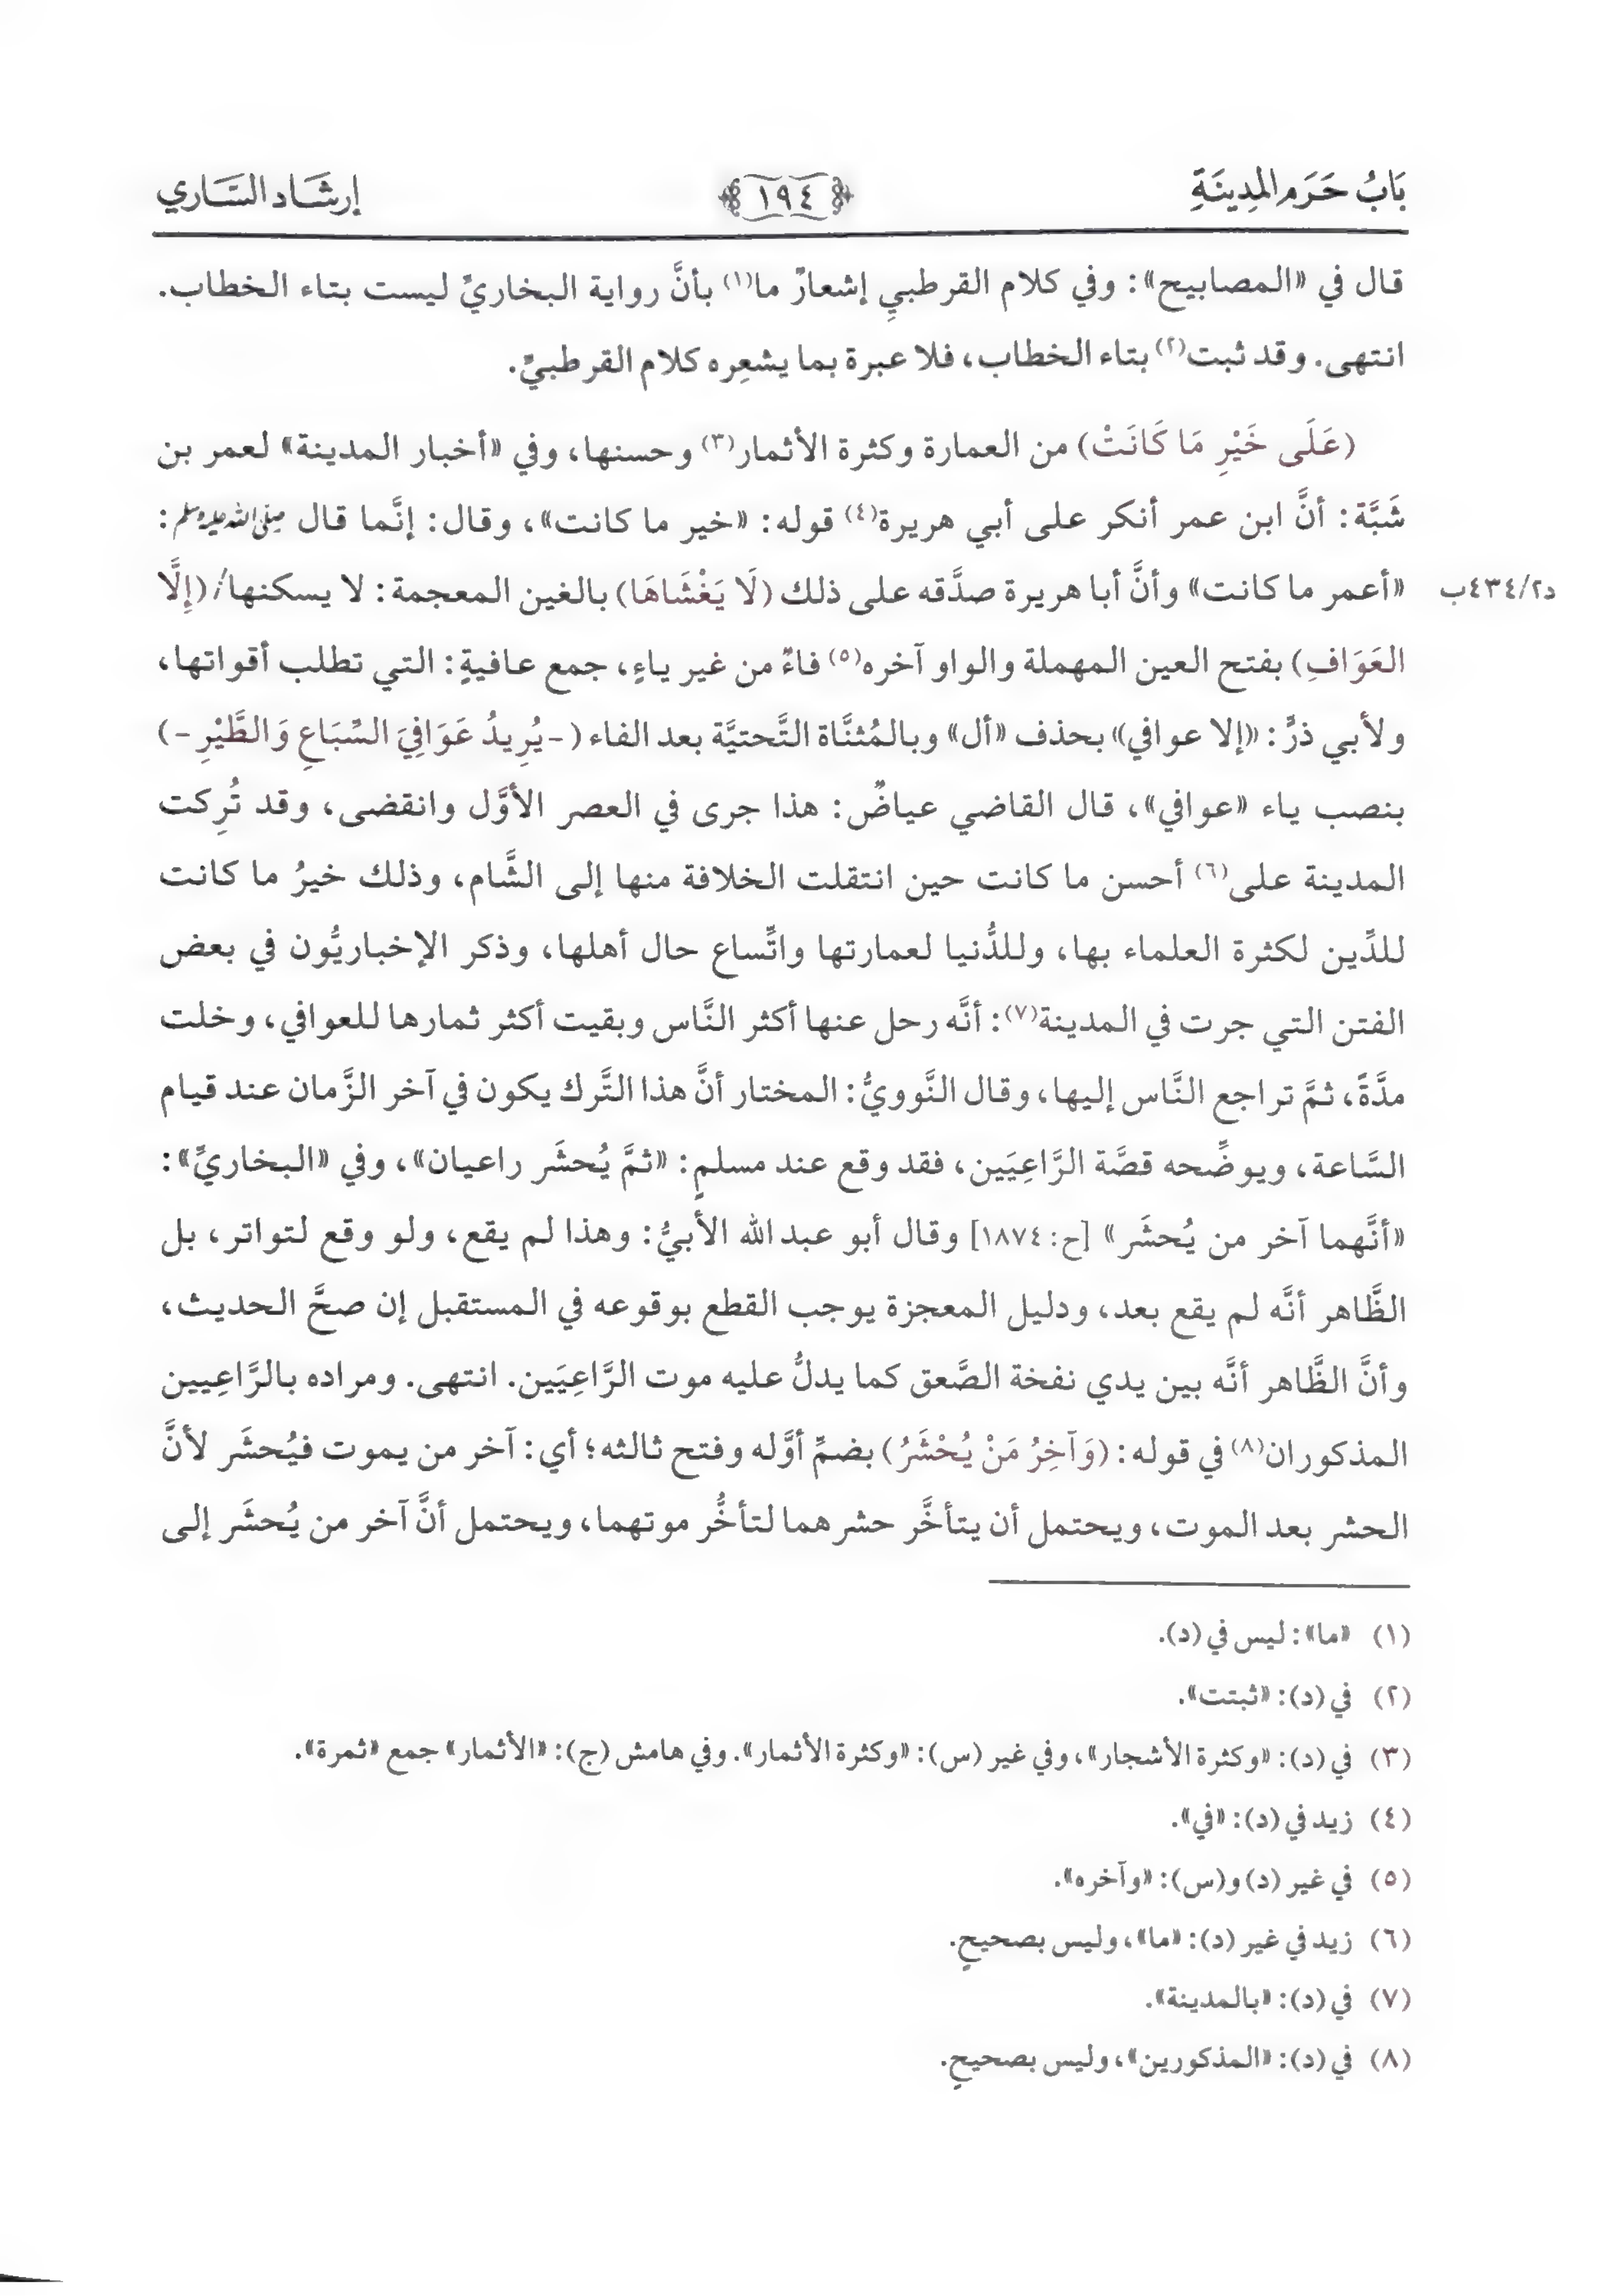 بَابُ حَرَمِ المَدِينَةِ
١٩٤
إرشَاد السَّاري
قال في «المصابيح»: وفي كلام القرطبيِ إشعارٌ ما(١) بأنَّ رواية البخاريِّ ليست بتاء الخطاب.
انتهى. وقد ثبت(٢) بتاء الخطاب، فلا عبرة بما يشعِره كلام القرطبيِّ.
(عَلَى خَيْرِ مَا كَانَتْ) من العمارة وكثرة الأثمار(٣) وحسنها، وفي «أخبار المدينة» لعمر بن
شَبَّة: أنَّ ابن عمر أنكر على أبي هريرة(٤) قوله: «خير ما كانت»، وقال: إنَّما قال صلى الله عليه وسلم:
«أعمر ما كانت» وأنَّ أبا هريرة صدَّقه على ذلك (لَا يَغْشَاهَا) بالغين المعجمة: لا يسكنها/ (إِلَّا
د٤٣٤/٢ب
العَوَافِ) بفتح العين المهملة والواو آخره(٥) فاءٌ من غير ياءٍ، جمع عافيةٍ: التي تطلب أقواتها،
ولأبي ذرٍّ: «إلا عوافي» بحذف «أل» وبالمُثنَّاة التَّحتيَّة بعد الفاء (-يُرِيدُ عَوَافِيَ السِّبَاعِ وَالطَّيْرِ-)
بنصب ياء «عوافي»، قال القاضي عياضٌ: هذا جرى في العصر الأوَّل وانقضى، وقد تُرِكت
المدينة على(٦) أحسن ما كانت حين انتقلت الخلافة منها إلى الشَّام، وذلك خيرُ ما كانت
للدِّين لكثرة العلماء بها، وللدُّنيا لعمارتها واتِّساع حال أهلها، وذكر الإخباريُّون في بعض
الفتن التي جرت في المدينة(٧): أنَّه رحل عنها أكثر النَّاس وبقيت أكثر ثمارها للعوافي، وخلت
مدَّةً، ثمَّ تراجع النَّاس إليها، وقال النَّوويُّ: المختار أنَّ هذا التَّرك يكون في آخر الزَّمان عند قيام
السَّاعة، ويوضِّحه قصَّة الرَّاعِيَين، فقد وقع عند مسلمٍ: «ثمَّ يُحشَر راعيان»، وفي «البخاريِّ»:
«أنَّهما آخر من يُحشَر» [ح: ١٨٧٤] وقال أبو عبد الله الأُبيُّ: وهذا لم يقع، ولو وقع لتواتر، بل
الظَّاهر أنَّه لم يقع بعد، ودليل المعجزة يوجب القطع بوقوعه في المستقبل إن صحَّ الحديث،
وأنَّ الظَّاهر أنَّه بين يدي نفخة الصَّعق كما يدلُّ عليه موت الرَّاعِيَين. انتهى. ومراده بالرَّاعِيين
المذكوران(٨) في قوله: (وَآخِرُ مَنْ يُحْشَرُ) بضمِّ أوَّله وفتح ثالثه؛ أي: آخر من يموت فيُحشَر لأنَّ
الحشر بعد الموت، ويحتمل أن يتأخَّر حشرهما لتأخُّر موتهما، ويحتمل أنَّ آخر من يُحشَر إلى
(١) «ما»: ليس في (د).
(٢) في (د): «ثبتت».
(٣) في (د): «وكثرة الأشجار»، وفي غير (س): «وكثرة الأثمار». وفي هامش (ج): «الأثمار» جمع «ثمرة».
(٤) زيد في (د): «في».
(٥) في غير (د) و(س): «وآخره».
(٦) زيد في غير (د): «ما»، وليس بصحيحٍ.
(٧) في (د): «بالمدينة».
(٨) في (د): «المذكورين»، وليس بصحيحٍ.